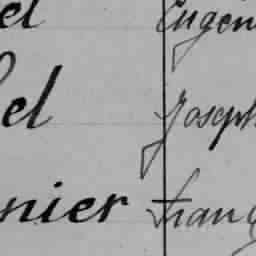 el Eugèn
el Joseph
nier Franç